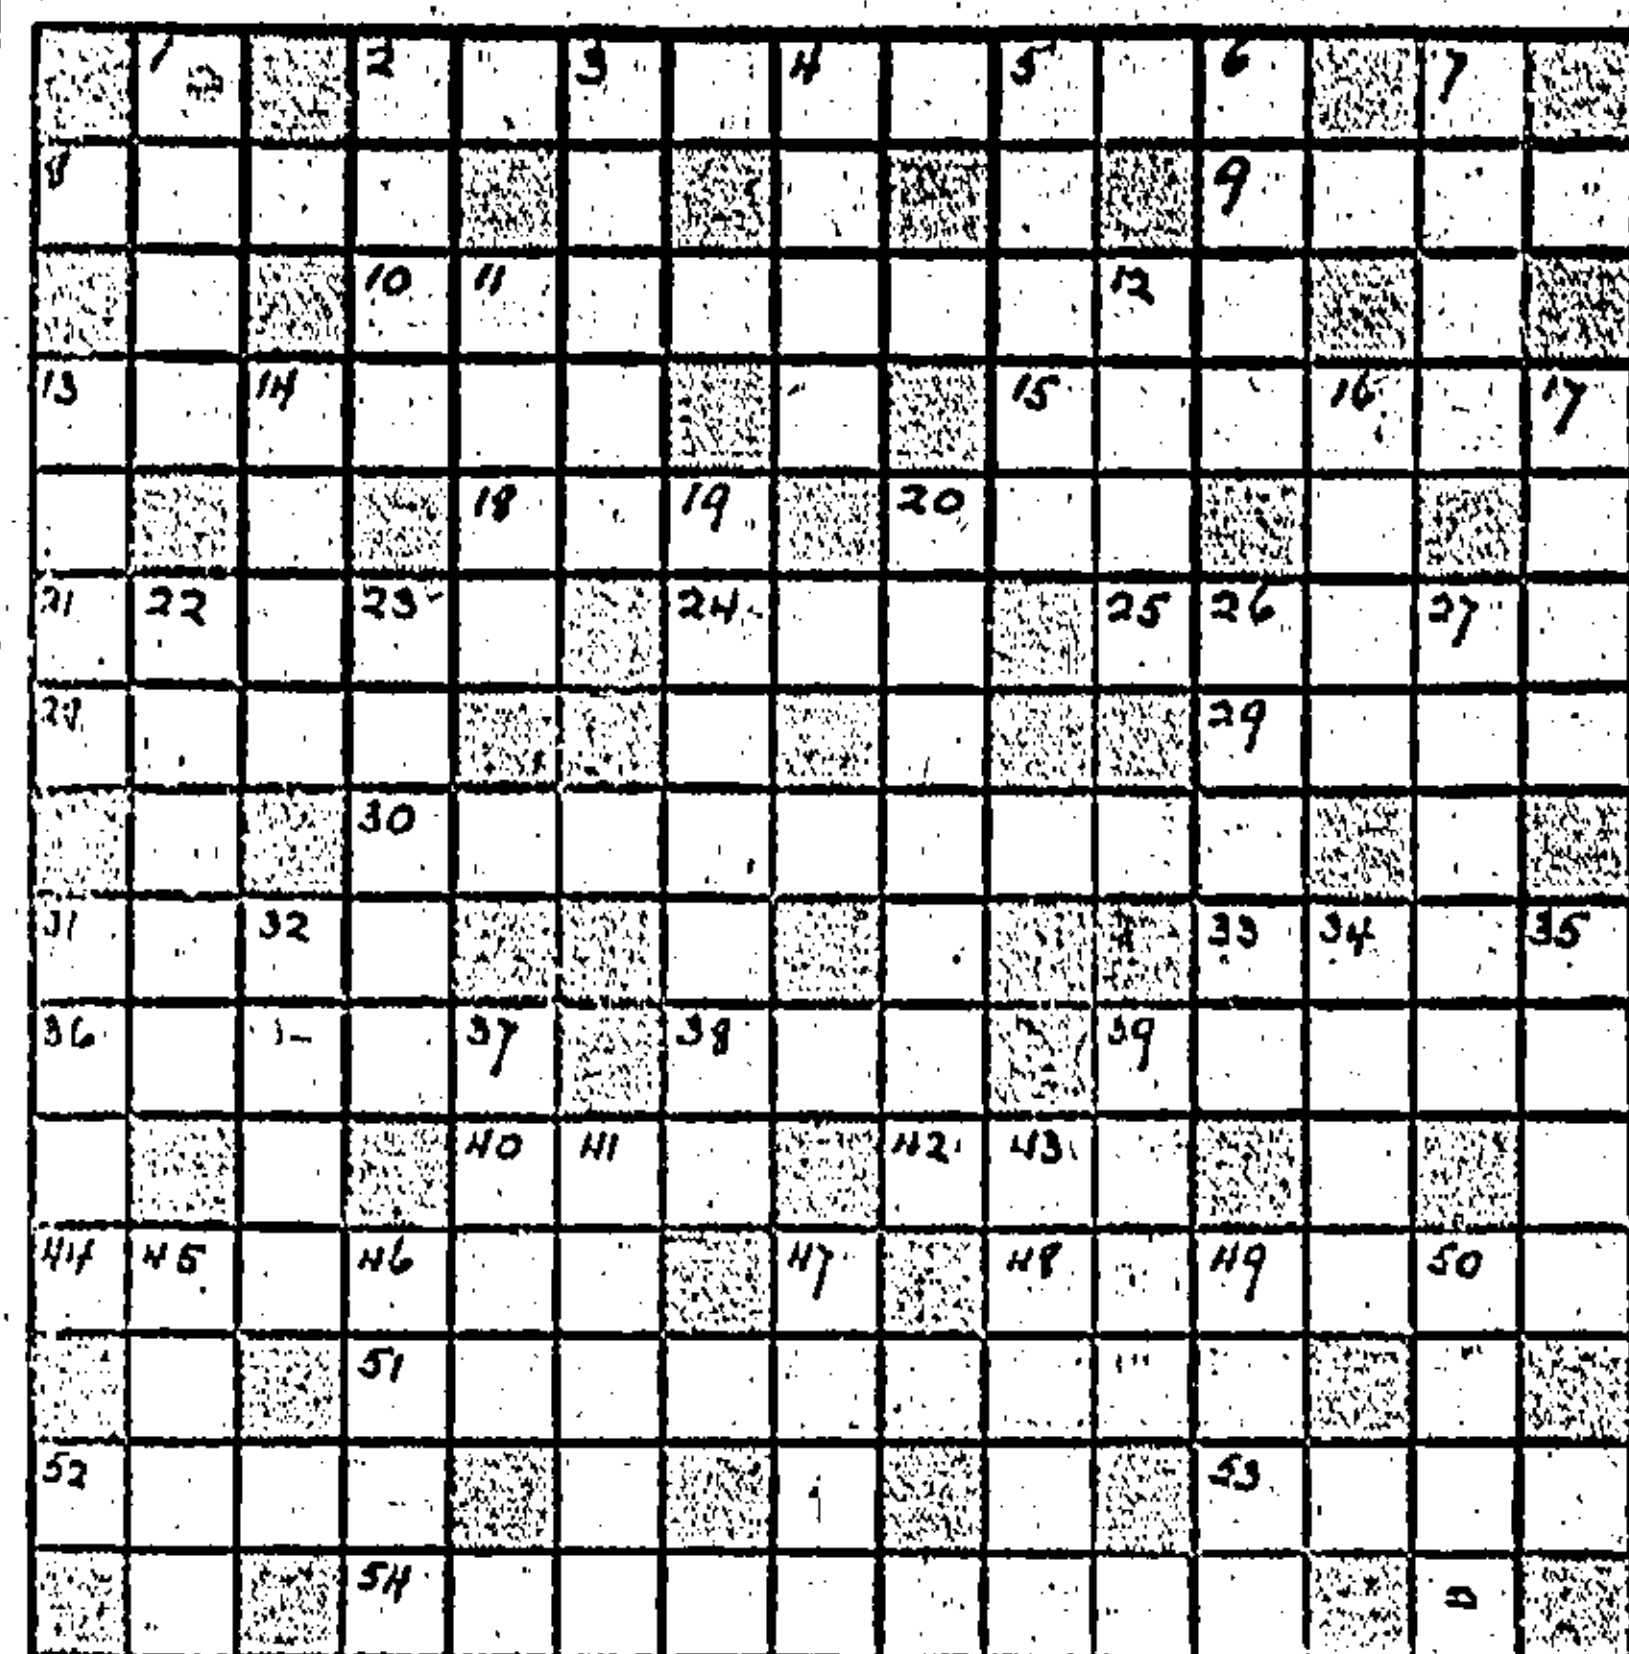 1 2 3 4 5 6 7
8 9
10 11 12
13 14 15 16 17
18 19 20
21 22 23 24 25 26 27
28 29
30
31 32 33 34 35
36 37 38 39
40 41 42 43
44 45 46 47 48 49 50
51
52 53
54